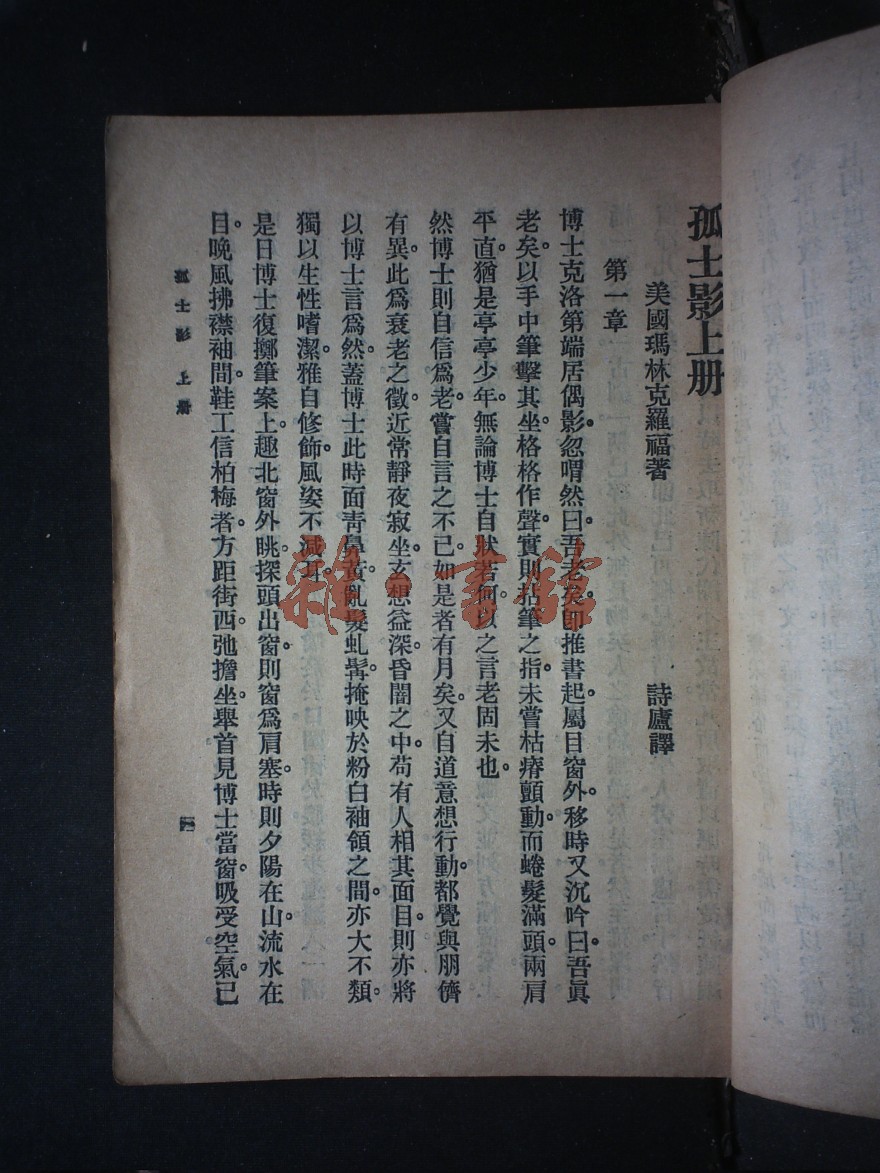 孤士影上册
美國瑪林克羅福著
詩廬譯
第一章
博士克洛第端居偶影。忽喟然曰。吾老矣。卽推書起。屬目窗外。移時又沉吟曰。吾眞
老矣。以手中筆擊其坐。格格作聲。實則拈筆之指。未嘗枯瘠顫動。而蜷髮滿頭。兩肩
平直。猶是亭亭少年。無論博士自狀若何。以之言老。固未也。
然博士則自信爲老。嘗自言之不已。如是者有月矣。又自道意想行動。都覺與朋儕
有異。此爲衰老之徵。近常靜夜寂坐。玄想益深。昏闇之中。苟有人相其面目。則亦將
以博士言爲然。蓋博士此時面靑鼻黃。亂髮虬髯。掩映於粉白袖領之間。亦大不類。
獨以生性嗜潔。雅自修飾。風姿不減耳。
是日博士復擲筆案上。趣北窗外眺。探頭出窗。則窗爲肩塞。時則夕陽在山。流水在
目。晚風拂襟袖間。鞋工信柏梅者。方距街西。弛擔坐。舉首見博士當窗吸受空氣。已
孤士影 上册
一
雜·書館